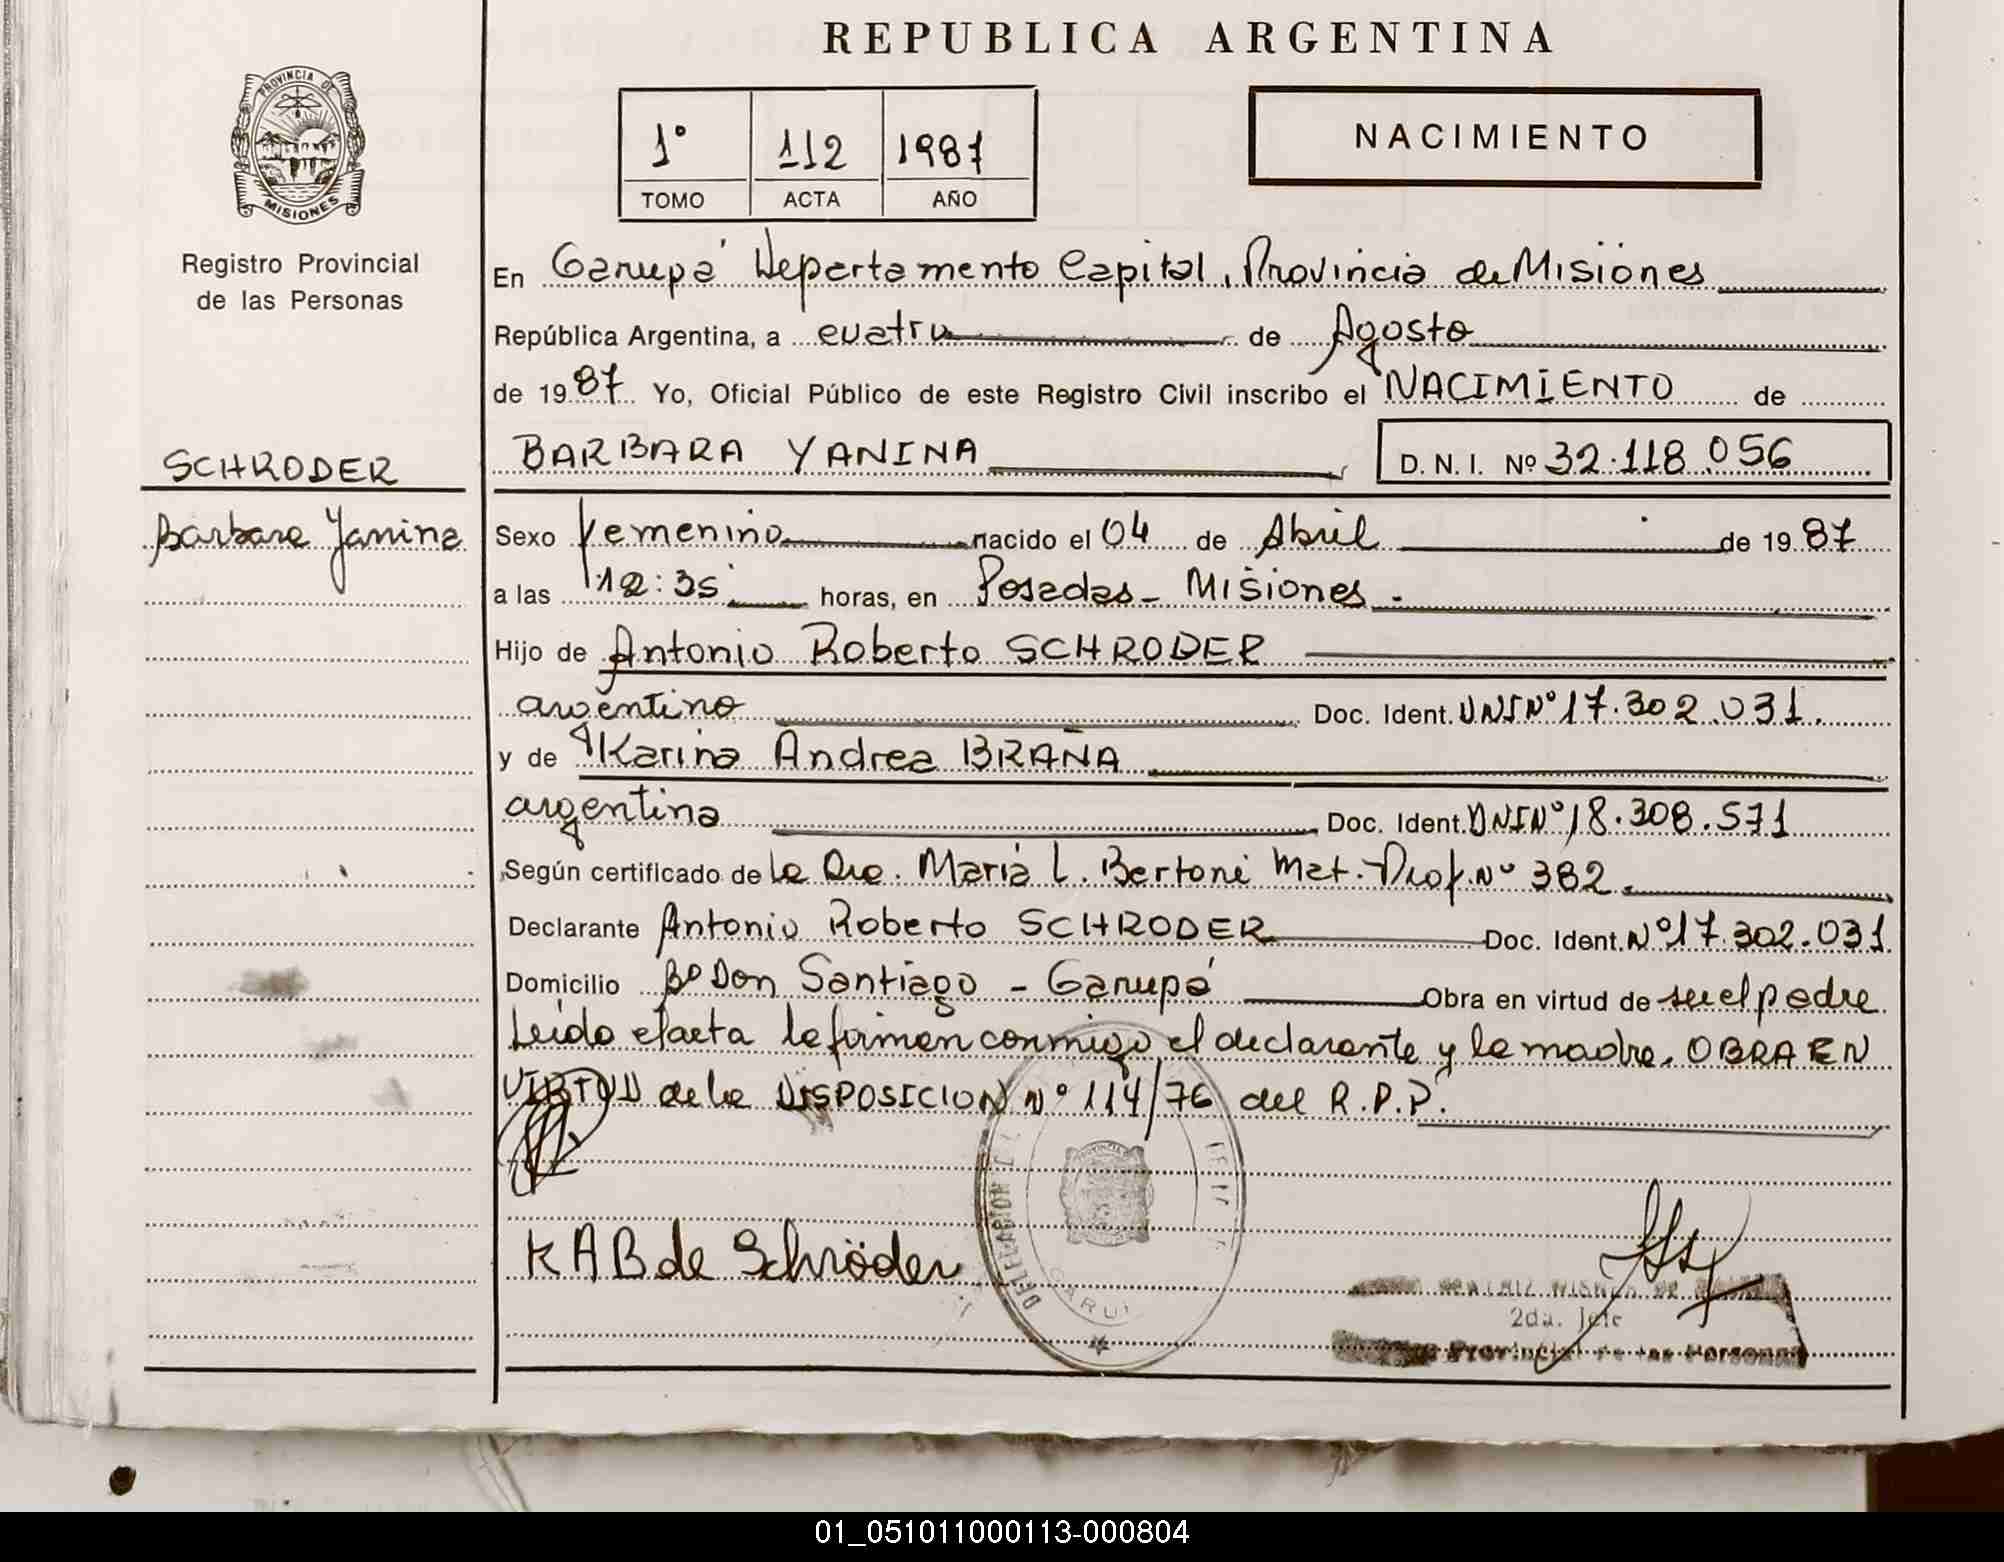 REPUBLICA ARGENTINA
PROVINCIA DE
MISIONES
1° 112 1987
TOMO ACTA AÑO
NACIMIENTO
Registro Provincial
de las Personas
En Garupá Departamento Capital, Provincia de Misiones
República Argentina, a cuatro de Agosto
de 1987 Yo, Oficial Público de este Registro Civil inscribo el NACIMIENTO de
BARBARA YANINA D. N. I. Nº 32.118.056
SCHRODER
Barbara Yanina
Sexo femenino nacido el 04 de Abril de 1987
a las 12:35 horas, en Posadas - Misiones.
Hijo de Antonio Roberto SCHRODER
argentino Doc. Ident. DNI Nº 17.302.031.
y de Karina Andrea BRAÑA
argentina Doc. Ident. DNI Nº 18.308.571
Según certificado de la Dra. María L. Bertoni Mat. Prof. Nº 382.
Declarante Antonio Roberto SCHRODER Doc. Ident. Nº 17.302.031.
Domicilio Bº Don Santiago - Garupá Obra en virtud de ser el padre
Leída el acta la firman conmigo el declarante y la madre. OBRA EN
VIRTUD de la DISPOSICION Nº 114/76 del R.P.P.
K A B de Schröder
2da. Jefe
Provincial de las Personas
01_051011000113-000804